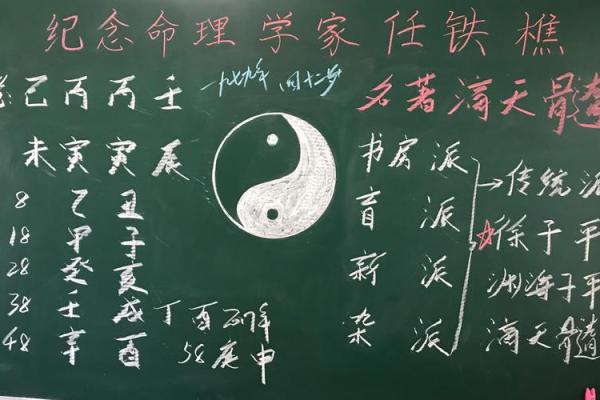 纪念命理学家任铁樵
己丙丙壬
一九七九年 四十二岁
名著滴天髓
未寅寅辰
书房派
传统
8 乙丑
盲派
18 甲子
徐子平
28 癸亥
新派
渊海子平
38 壬戌
丁酉
杂派
滴天髓
48 辛酉
58 庚申